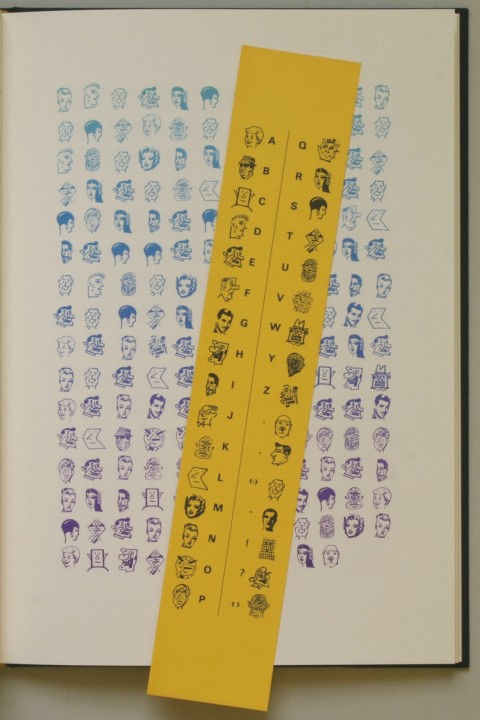 A
B
C
D
E
F
G
H
I
J
K
L
M
N
O
P
Q
R
S
T
U
V
W
Y
Z
.
,
‹›
-
!
?
()